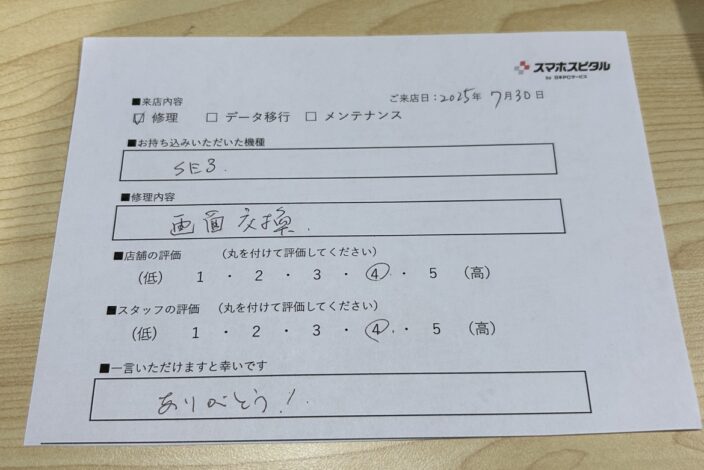 スマホスピタル
by 日本PCサービス
ご来店日：2025年 7月30日
■来店内容
☑ 修理 □ データ移行 □ メンテナンス
■お持ち込みいただいた機種
SE3.
■修理内容
画面交換.
■店舗の評価 （丸を付けて評価してください）
（低） 1 ・ 2 ・ 3 ・ 4 ・ 5 （高）
■スタッフの評価 （丸を付けて評価してください）
（低） 1 ・ 2 ・ 3 ・ 4 ・ 5 （高）
■一言いただけますと幸いです
ありがとう！